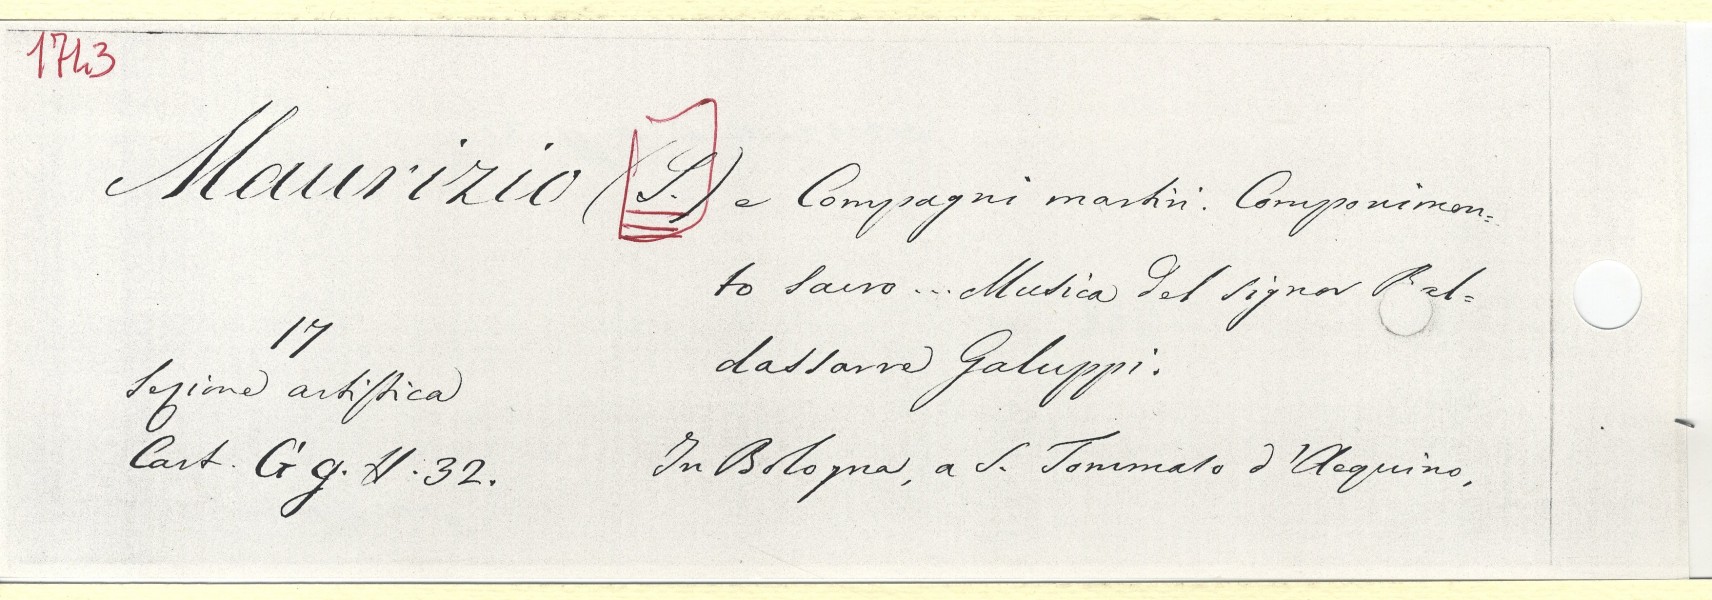 1743
Maurizio (S.) e Compagni martiri. Componimen=
to sacro ... Musica del signor Bal=
dassarre Galuppi.
17
Sezione artistica
Cart. G g. H. 32.
In Bologna, a S. Tommaso d'Acquino,